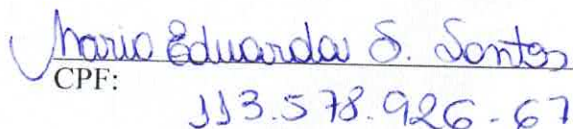 Maria Eduarda S. Santos
CPF:
113.578.926-67